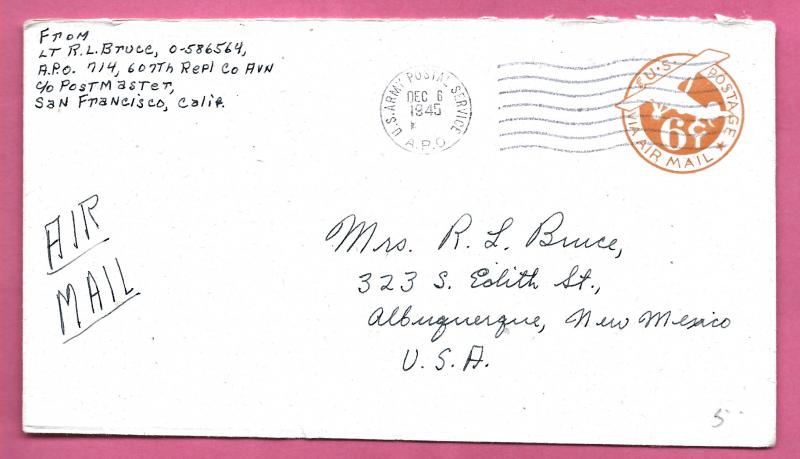 From
Lt R.L. Bruce, O-586564,
A.P.O. 714, 607th Repl Co Avn
c/o Postmaster,
San Francisco, Calif.
U.S. ARMY POSTAL SERVICE
DEC 6
1945
A.P.O.
U.S. POSTAGE
6¢
VIA AIR MAIL
AIR
MAIL
Mrs. R. L. Bruce,
323 S. Edith St.,
Albuquerque, New Mexico
U.S.A.
5